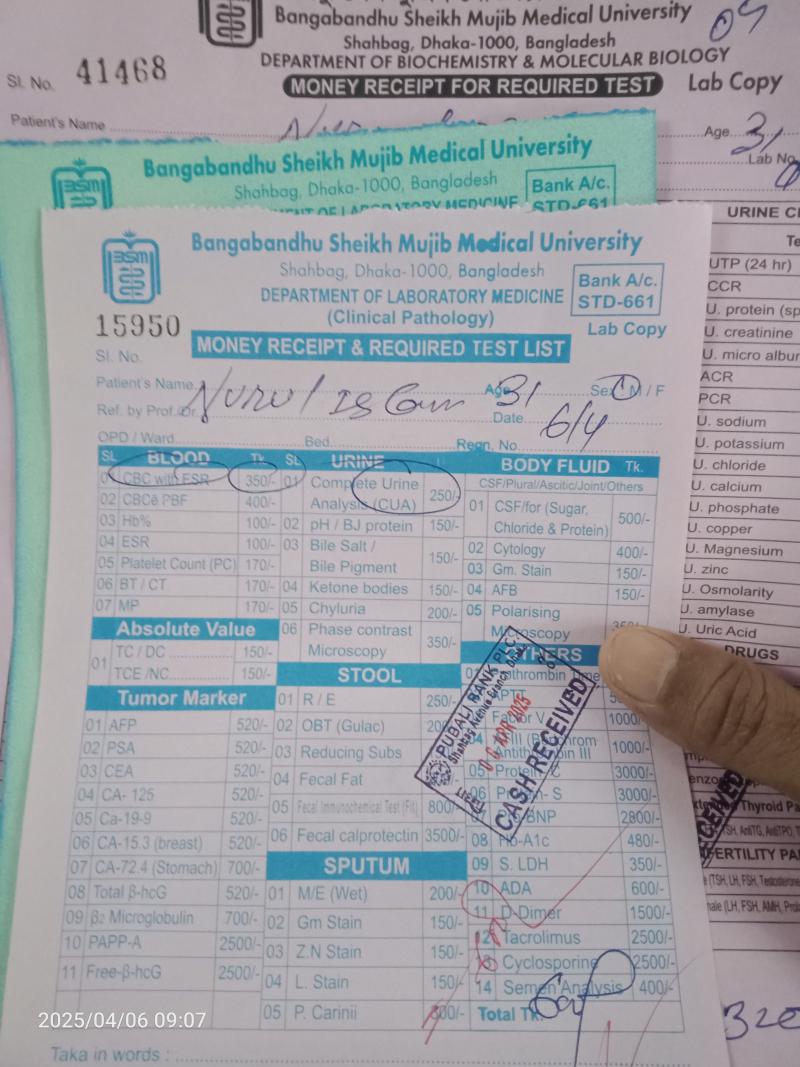 Bangabandhu Sheikh Mujib Medical University
Shahbag, Dhaka-1000, Bangladesh
DEPARTMENT OF BIOCHEMISTRY & MOLECULAR BIOLOGY
Sl. No. 41468
MONEY RECEIPT FOR REQUIRED TEST
Lab Copy
Patient's Name
Age 31
Lab No
Bangabandhu Sheikh Mujib Medical University
Shahbag, Dhaka-1000, Bangladesh
Bank A/c.
STD-661
URINE
UTP (24 hr)
CCR
U. protein
U. creatinine
U. micro
ACR
PCR
U. sodium
U. potassium
U. chloride
U. calcium
U. phosphate
U. copper
U. Magnesium
U. zinc
U. Osmolarity
U. amylase
U. Uric Acid
DRUGS
Thyroid
(TSH, LH, FSH,
(LH, FSH, AMH,
Bangabandhu Sheikh Mujib Medical University
Shahbag, Dhaka-1000, Bangladesh
DEPARTMENT OF LABORATORY MEDICINE
(Clinical Pathology)
Bank A/c.
STD-661
Lab Copy
15950
Sl. No.
MONEY RECEIPT & REQUIRED TEST LIST
Patient's Name Nurul Islam Age 31 Sex M / F
Ref. by Prof./Dr. Date 6/4
OPD / Ward Bed Regn. No.
SL BLOOD Tk. SL URINE BODY FLUID Tk.
01 CBC with ESR 350/- 01 Complete Urine Analysis (CUA) 250/- CSF/Plural/Ascitic/Joint/Others
02 CBCē PBF 400/- 01 CSF/for (Sugar, Chloride & Protein) 500/-
03 Hb% 100/- 02 pH / BJ protein 150/-
04 ESR 100/- 03 Bile Salt / Bile Pigment 150/- 02 Cytology 400/-
05 Platelet Count (PC) 170/- 03 Gm. Stain 150/-
06 BT / CT 170/- 04 Ketone bodies 150/- 04 AFB 150/-
07 MP 170/- 05 Chyluria 200/- 05 Polarising Microscopy
Absolute Value 06 Phase contrast Microscopy 350/-
01 TC / DC 150/-
TCE /NC 150/-
STOOL
01 R / E 250/-
02 OBT (Gulac)
03 Reducing Subs
04 Fecal Fat
05 Fecal Immunochemical Test (Fit) 800/-
06 Fecal calprotectin 3500/-
Tumor Marker
01 AFP 520/-
02 PSA 520/-
03 CEA 520/-
04 CA- 125 520/-
05 Ca-19-9 520/-
06 CA-15.3 (breast) 520/-
07 CA-72.4 (Stomach) 700/-
08 Total β-hcG 520/-
09 β2 Microglobulin 700/-
10 PAPP-A 2500/-
11 Free-β-hcG 2500/-
SPUTUM
01 M/E (Wet) 200/-
02 Gm Stain 150/-
03 Z.N Stain 150/-
04 L. Stain 150/-
05 P. Carinii
OTHERS
Time
Factor V 1000/-
1000/-
05 Protein C 3000/-
06 S 3000/-
BNP 2800/-
08 Hb-A1c 480/-
09 S. LDH 350/-
10 ADA 600/-
11 D-Dimer 1500/-
12 Tacrolimus 2500/-
13 Cyclosporine 2500/-
14 Semen Analysis 400/-
Total Tk.
Taka in words :
PUBALI BANK PLC.
Shahbag Avenue Branch, Dhaka
06 APR 2025
CASH RECEIVED
2025/04/06 09:07